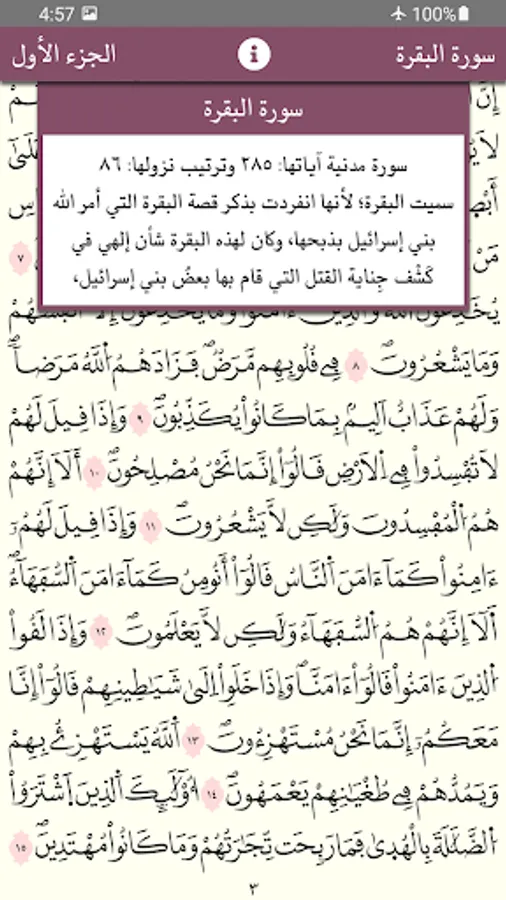 4:57 100%
سورة البقرة الجزء الأول
سورة البقرة
سورة مدنية آياتها: ٢٨٥ وترتيب نزولها: ٨٦
سميت البقرة؛ لأنها انفردت بذكر قصة البقرة التي أمر الله
بني إسرائيل بذبحها، وكان لهذه البقرة شأن إلهي في
كَشْف جِناية القتل التي قام بها بعضُ بني إسرائيل،
٧
وَمَا يَشْعُرُونَ ٨ فِے قُلُوبِهِم مَّرَضٞ فَزَادَهُمُ اُللَّهُ مَرَضاٗ
وَلَهُمْ عَذَابٌ اَلِيمُۢ بِمَا كَانُواْ يُكَذِّبُونَ ٩ وَإِذَا قِيلَ لَهُمْ
لَا تُفْسِدُواْ فِے اِلَارْضِ قَالُوٓاْ إِنَّمَا نَحْنُ مُصْلِحُونَ ١٠ أَلَآ إِنَّهُمْ
هُمُ اُلْمُفْسِدُونَ وَلَٰكِن لَّا يَشْعُرُونَ ١١ وَإِذَا قِيلَ لَهُمُۥٓ
ءَامِنُواْ كَمَآ ءَامَنَ اَلنَّاسُ قَالُوٓاْ أَنُومِنُ كَمَآ ءَامَنَ اَلسُّفَهَآءُ
أَلَآ إِنَّهُمْ هُمُ اُلسُّفَهَآءُ وَلَٰكِن لَّا يَعْلَمُونَ ١٢ وَإِذَا لَقُواْ
اُلذِينَ ءَامَنُواْ قَالُوٓاْ ءَامَنَّا وَإِذَا خَلَوِاْ اِلَىٰ شَيَٰطِينِهِمْ قَالُوٓاْ إِنَّا
مَعَكُمُۥٓ إِنَّمَا نَحْنُ مُسْتَهْزِءُونَ ١٣ اَللَّهُ يَسْتَهْزِۓُ بِهِمْ
وَيَمُدُّهُمْ فِے طُغْيَٰنِهِمْ يَعْمَهُونَ ١٤ أُوْلَٰٓئِكَ اَلذِينَ اَشْتَرَوُاْ
اُلضَّلَٰلَةَ بِالْهُدَىٰ فَمَا رَبِحَت تِّجَٰرَتُهُمْ وَمَا كَانُواْ مُهْتَدِينَ ١٥
٣